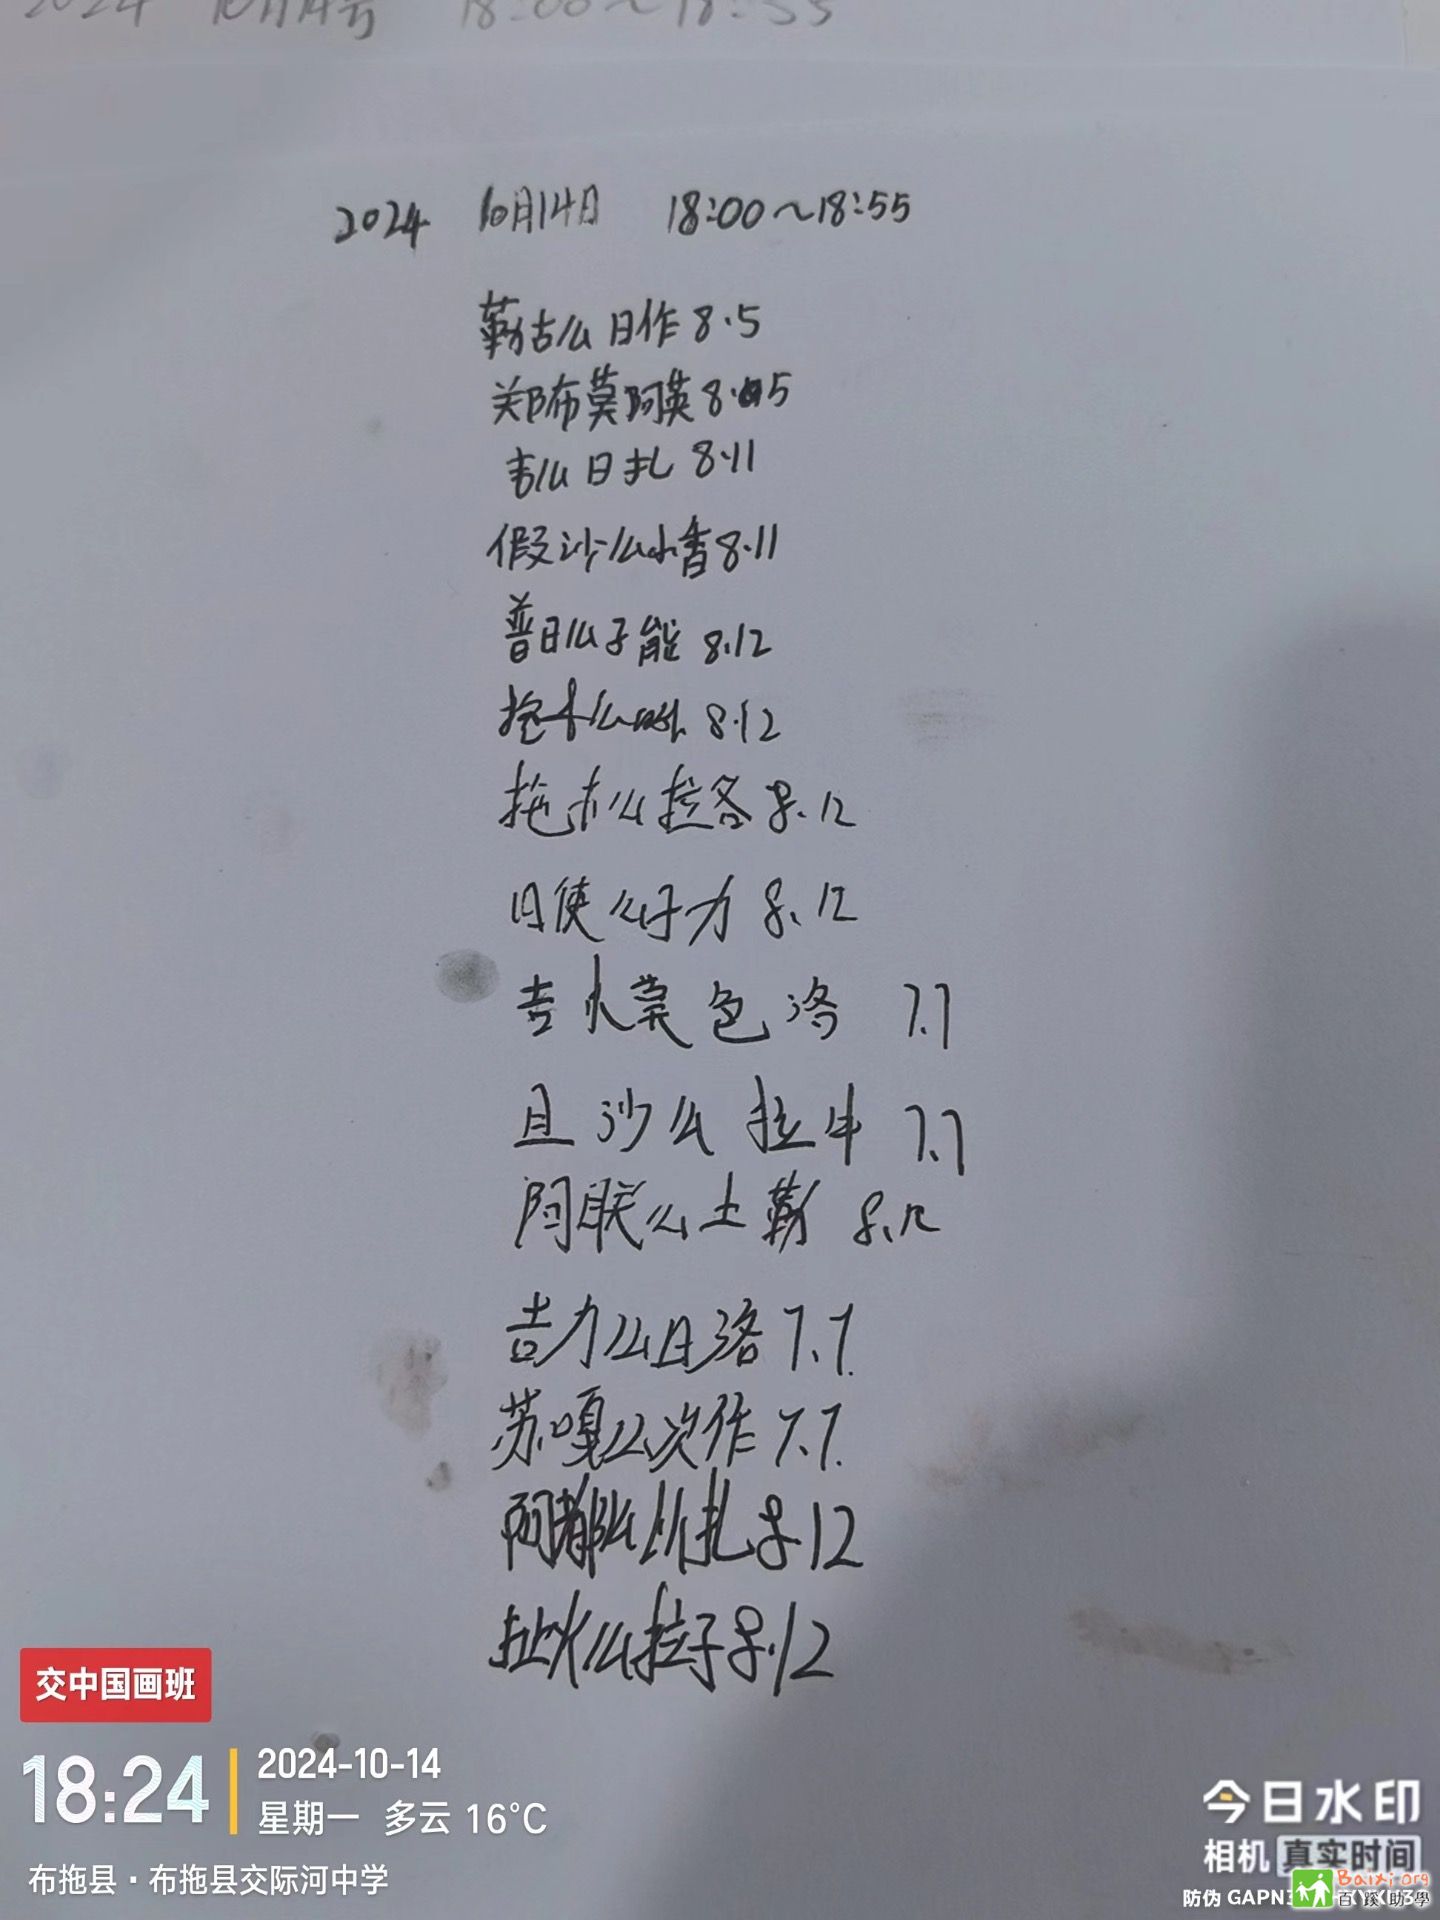 2024 10月14号 18:00～18:55
2024 10月14日 18:00～18:55
勒古么日作 8.5
郑布莫阿英 8.5
韦么日扎 8.11
假沙么小香 8.11
普日么子能 8.12
8.12
拖木么拉各 8.12
日使么子力 8.12
吉火莫色洛 7.7
且沙么拉牛 7.7
阿联么土勒 8.12
吉力么日洛 7.7
苏嘎么次作 7.7.
阿都么以扎 8.12
扯火么拉子 8.12
交中国画班
18:24
2024-10-14
星期一 多云 16°C
布拖县·布拖县交际河中学
今日水印
相机 真实时间
防伪 GAPN
Baixi.org
百蹊助學